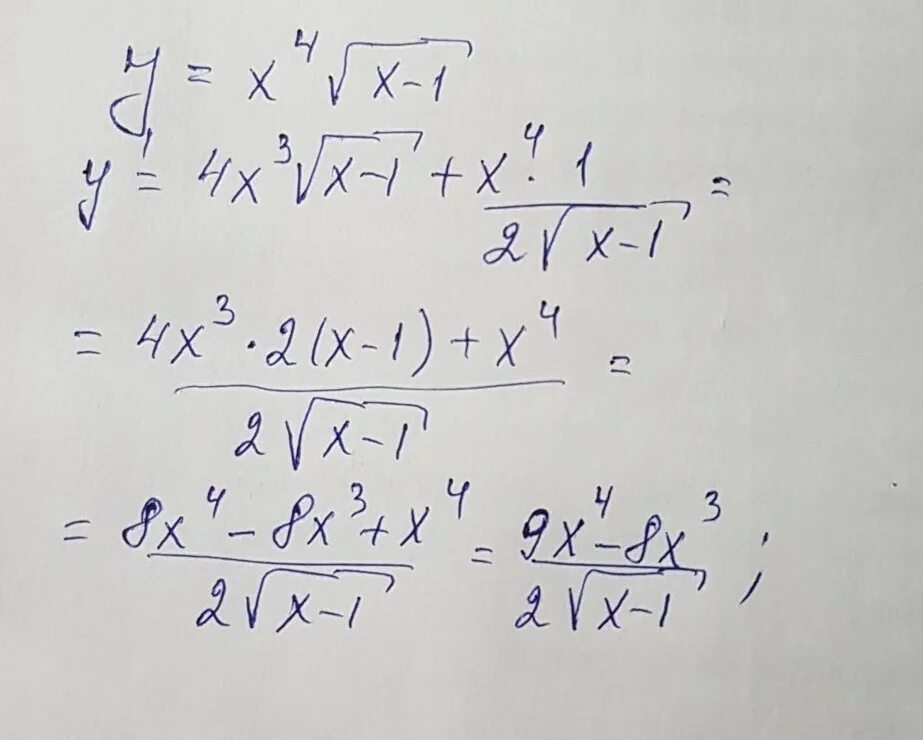 y = x⁴√(x-1)
y' = 4x³√(x-1) + x⁴·1/(2√(x-1)) =
= (4x³·2(x-1)+x⁴)/(2√(x-1)) =
= (8x⁴-8x³+x⁴)/(2√(x-1)) = (9x⁴-8x³)/(2√(x-1)) ;